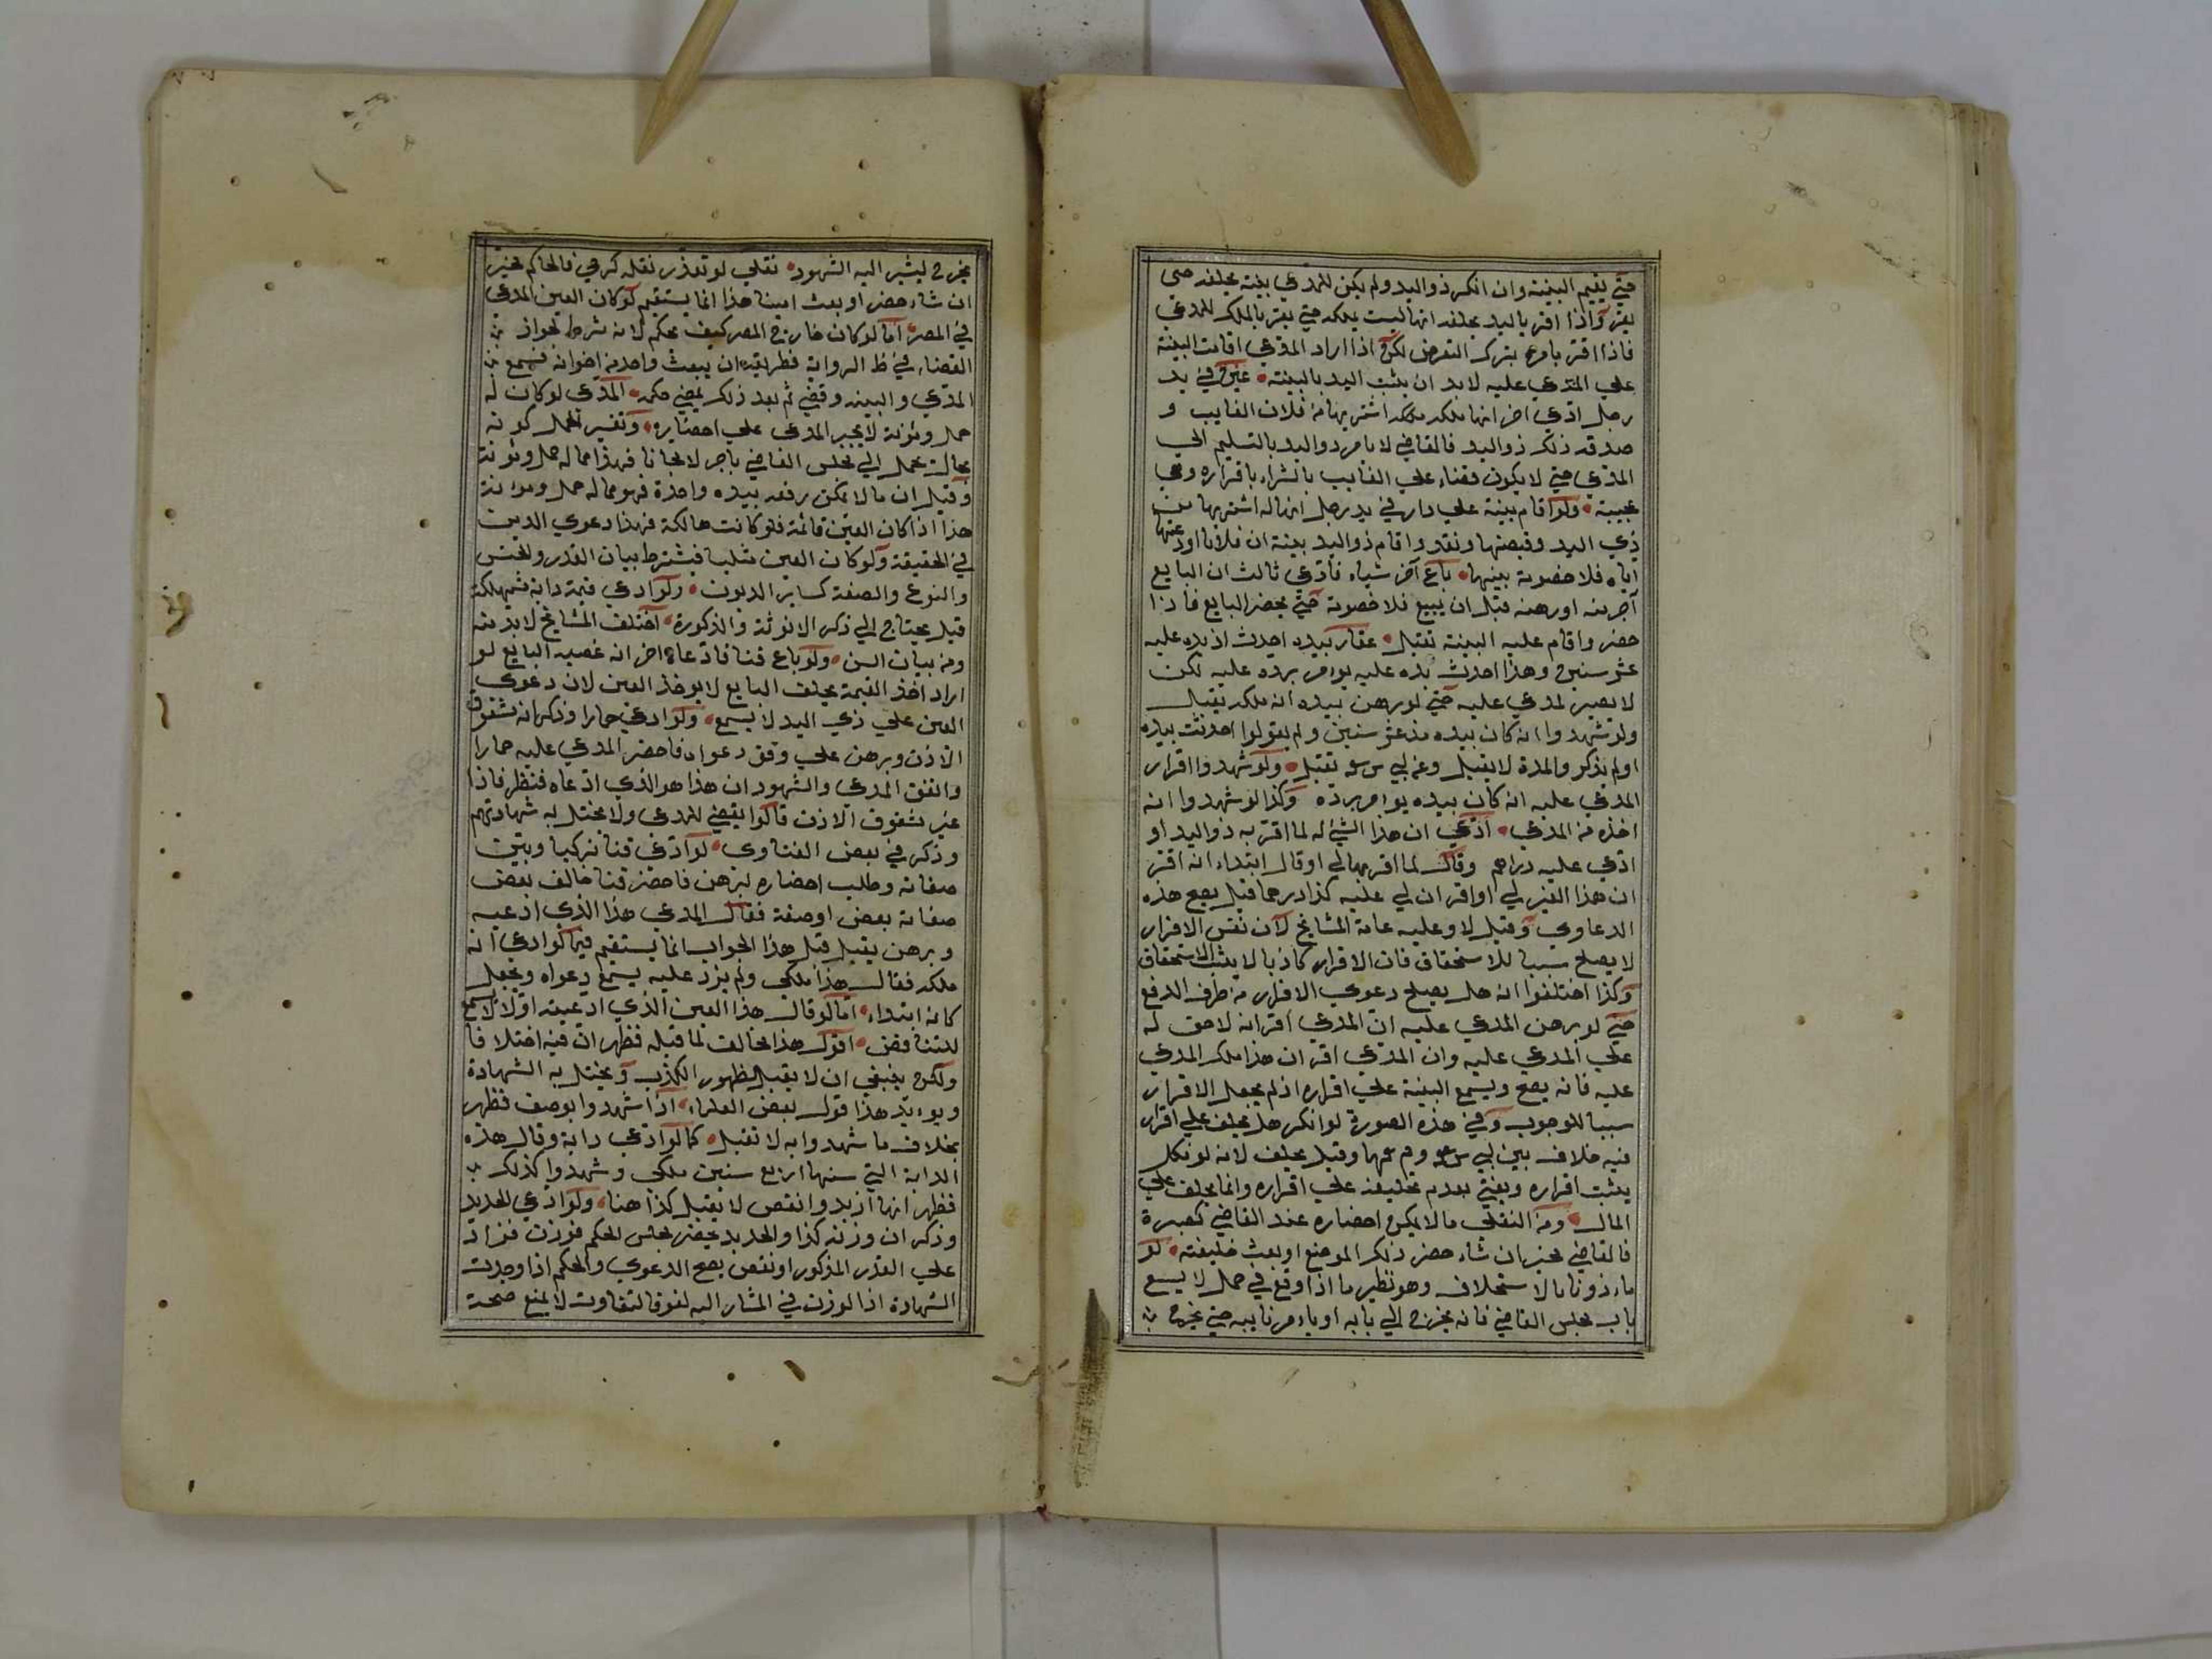 حتي يقيم البينة وان انكر ذو اليد ولم يكن للمدعي بينة يحلفه حتى
يقر واذا اقر باليد يحلفه انها ليست يملكه حتي يقر بالملك للمدعي
فاذا اقر يامره بترك التعرض لكن اذا اراد المدعي اقامت البينة
علي المدعي عليه لا بد ان يثبت اليد بالبينة عين في يد
رجل ادعي اخر انها ملكه اشتريها من فلان الغايب و
صدقه ذلك ذو اليد فالقاضي لا يامر ذو اليد بالتسليم الي
المدعي حتي لا يكون قضاء علي الغايب بالشراء باقراره وهي
عجيبة ولو اقام بينة علي دار في يد رجل انها له اشتريها من
ذي اليد وقبضها ونقد واقام ذو اليد بينة ان فلانا اودعنيها
اياه فلا خصومة بينهما باع آخر شياء فادعي ثالث ان البايع
آجر منه او رهنه قبل ان يبيع فلا خصومة حتي يحضر البايع فاذا
حضر واقام عليه البينة تقبل عقار بيده احدث اذ يده عليه
عشر سنين وهذا احدث يده عليه يوامر برده عليه لكن
لا يصير لمدعي عليه حتي لو برهن بيده انه ملكه يقبل
ولو شهدوا انه كان بيده مذ عشر سنين ولم يقولوا احدثت بيده
او لم يذكروا المدة لا يقبل وعن ابي س تقبل ولو شهدوا اقرار
المدعي عليه انه كان بيده يوامر برده وكذا لو شهدوا انه
اخذه من المدعي ادعي ان هذا الشئ له لما اقر به ذو اليد او
ادعي عليه دراهم وقال لما اقر بها لي او قال ابتداء انه اقر
ان هذا الغير لي او اقر ان لي عليه كذا درهما قيل يصح هذه
الدعاوي وقيل لا وعليه عامة المشايخ لان نفس الاقرار
لا يصلح سببا للاستحقاق فان الاقرار كاذبا لا يثبت الاستحقاق
وكذا اختلفوا انه هل يصلح دعوي الاقرار من طرف الدفع
حتي لو برهن المدعي عليه ان المدعي اقر انه لا حق له
علي المدعي عليه وان المدعي اقر ان هذا ملك المدعي
عليه فانه يصح ويسمع البينة علي اقراره اذ لم يجعل الاقرار
سببا للوجوب وفي هذه الصورة لو انكر هل يحلف علي اقرار
فيه خلاف بين ابي س وم وقيل يحلف لانه لو نكل
يثبت اقراره ويفتي بعدم تحليفه علي اقراره وانما يحلف علي
المال ومن النقلي ما لا يمكن احضاره عند القاضي كصبرة
فالقاضي يخير ان شاء حضر ذلك الموضع او بعث خليفته لو
ماءذونا بالاستخلاف وهو نظير ما اذا وقع في حمل لا يسع
باب مجلس القاضي فانه يخرج الي بابه او ياءمر نايبه حتي يخرج
يخرج ليشير اليه الشهود نقلي لو تعذر نقله كرحي فالحاكم يخير
ان شاء حضر او بعث امينا هذا انما يستقيم لو كان العين المدعي
في المصر اما لو كان خارج المصر كيف يحكم لانه شرط لجواز
القضاء في ظ الرواية فطريقته ان يبعث واحد من اخوانه فيسمع
المدعي والبينه وقضي ثم بعد ذلك يمضي حكمه المدعي لو كان له
حمل ومؤنة لا يجبر المدعي علي احضاره وتفسير الحمل كونه
بحال يحمل الي مجلس القاضي باجر لا مجانا فهذا مما له حمل ومؤنة
وقيل ان ما لا يمكن رفعه بيده واحدة فهو مما له حمل ومؤنة
هذا اذا كان العين قائمة فلو كانت هالكة فهذا دعوي الدين
في الحقيقة ولو كان العين مثليا فيشترط بيان القدر والجنس
والنوع والصفة كساير الديون ولو ادعي قيمة دابة مستهلكة
قيل يحتاج الي ذكر الانوثة والذكورة اختلف المشايخ لابد منه
ومن بيان السن ولو باع قنا فادعاه اخر انه غصبه البايع لو
اراد اخذ القيمة يحلف البايع لا يوخذ العين لان دعوي
العين علي ذي اليد لا يسمع ولو ادعي حمارا وذكر انه مشقوق
الاذن وبرهن علي وفق دعواه فاحضر المدعي عليه حمارا
واتفق المدعي والشهود ان هذا هو الذي ادعاه فنظر فاذا
غير مشقوق الاذن قالوا يقضي للمدعي ولا يختل به شهادتهم
وذكر في بعض الفتاوي لو ادعي قنا تركيا وبين
صفاته وطلب احضاره ليبرهن فاحضر قنا خالف بعض
صفاته بعض اوصفة فقال المدعي هذا الذي ادعيه
وبرهن يقبل قيل هذا الجواب انما يستقيم فيما لو ادعي انه
ملكه فقال هذا ملكي ولم يزد عليه يسمع دعواه ويجعل
كانه ابتداء اما لو قال هذا العين الذي ادعيته اولا لا يسمع
للتناقض اقول هذا مخالف لما قبله فظهر ان فيه اختلافا
ولكن ينبغي ان لا يقبل لظهور الكذب ويختل به الشهادة
ويوءيد هذا قول بعض العلماء اذا شهدوا بوصف فظهر
بخلاف ما شهدوا به لا تقبل كما لو ادعي دابة وقال هذه
الدابة التي سنها اربع سنين ملكي وشهدوا كذلك
فظهر انها ازيد وانقص لا يقبل كذا هنا ولو ادعي الحديد
وذكر ان وزنه كذا والحديد يحضر مجلس الحكم فوزن فزاد
علي القدر المذكور او نقص يصح الدعوي والحكم اذا وجدت
الشهادة اذ الوزن في المشار اليه لغو فالتفاوت لا يمنع صحة